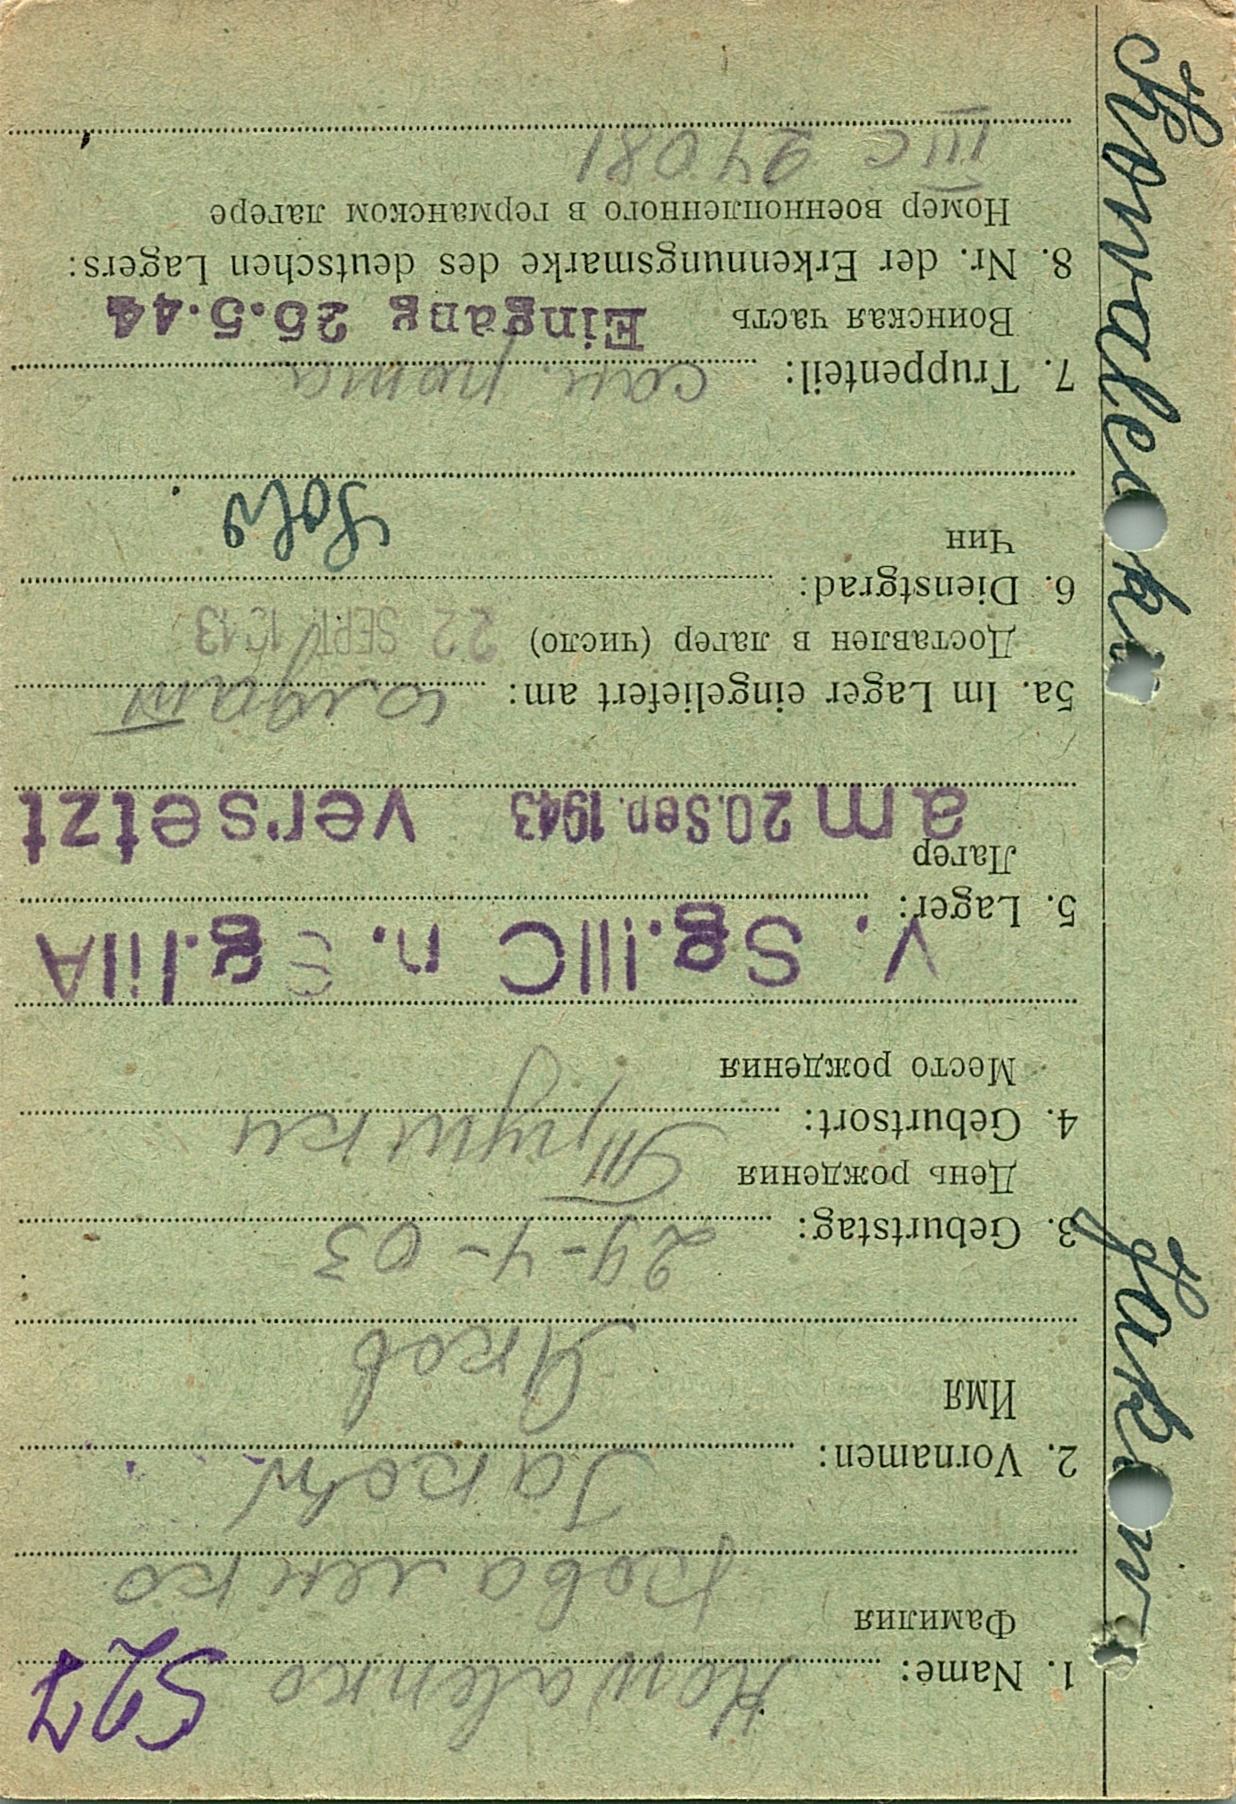 527
1. Name: Kowalenko
Фамилия Коваленко
2. Vornamen: Jakow
Имя Яков
3. Geburtstag: 29-4-03
День рождения
4. Geburtsort:
Место рождения
V. Sg.IIIC n. Sg.IIIA
5. Lager:
Лагер
am 20.Sep.1943 versetzt
5a. Im Lager eingeliefert am: солдат
Доставлен в лагер (число) 22 SEPT. 1943
6. Dienstgrad:
Чин Sold
7. Truppenteil: сан. рота
Воинская часть Eingang 25.5.44
8. Nr. der Erkennungsmarke des deutschen Lagers:
Номер военнопленного в германском лагере
IIIC 24081
Jakow